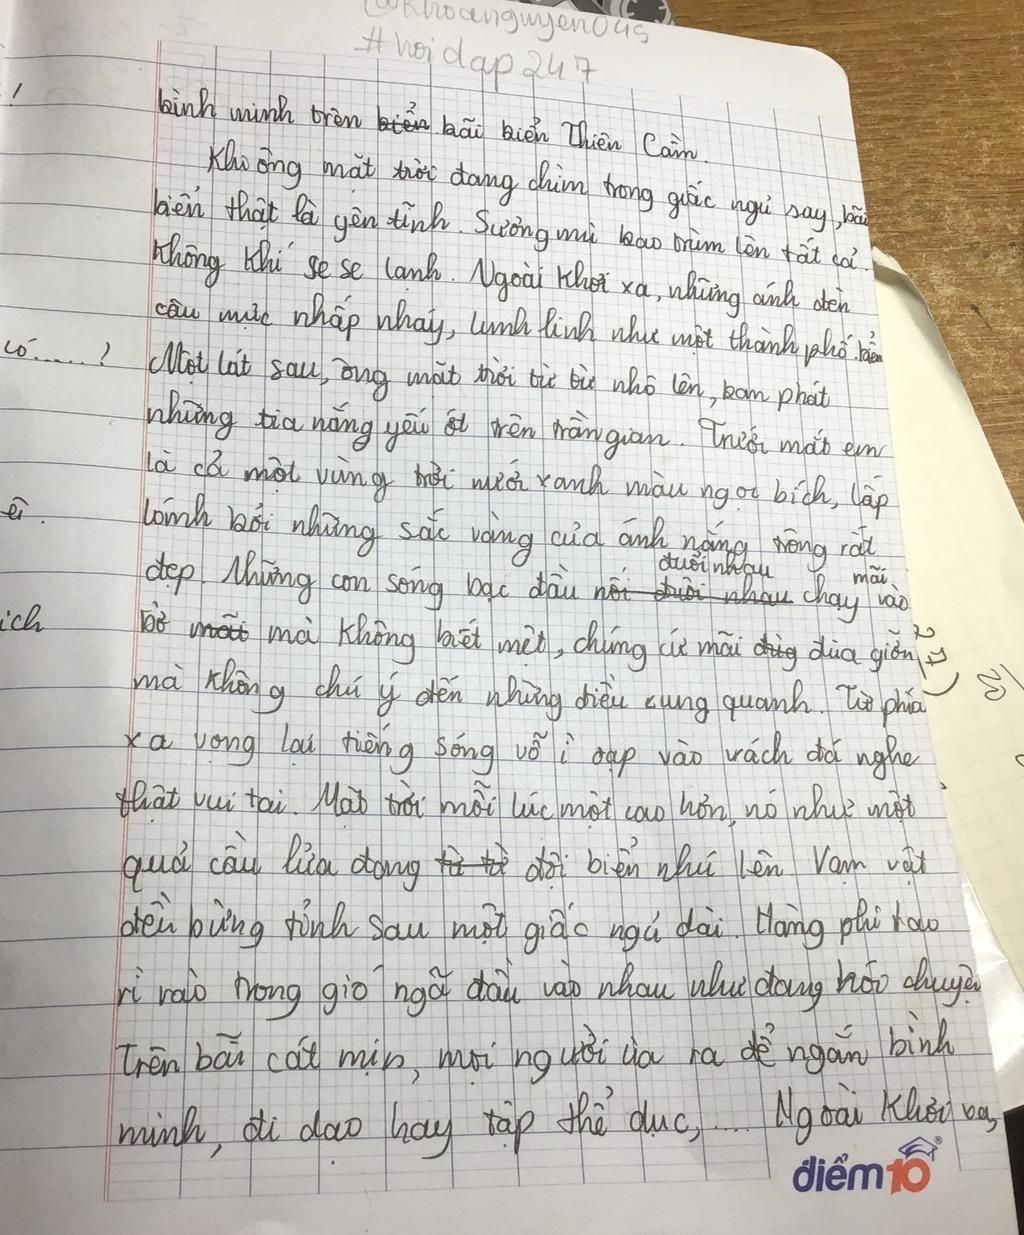 @khoanguyen045
#hoidap247
bình minh trên biển bãi biển Thiên Cầm.
Khi ông mặt trời đang chìm trong giấc ngủ say, bãi
biển thật là yên tĩnh. Sương mù bao trùm lên tất cả.
Không khí se se lạnh. Ngoài khơi xa, những ánh đèn
câu mực nhấp nháy, lunh linh như một thành phố biển
có......?
Một lát sau, ông mặt trời từ từ nhô lên, ban phát
những tia nắng yếu ớt trên trần gian. Trước mắt em
là cả một vùng trời nước xanh màu ngọc bích, lấp
lánh bởi những sắc vàng của ánh nắng trông rất
đuổi nhau mãi
đẹp. Những con sóng bạc đầu nối đuôi nhau chạy vào
ich
bờ mà không biết mệt, chúng cứ mãi đùa giỡn
mà không chú ý đến những điều cung quanh. Từ phía
xa vọng lại tiếng sóng vỗ ì oạp vào vách đá nghe
thật vui tai. Mặt trời mỗi lúc một cao hơn, nó như một
quả cầu lửa đang từ từ đội biển nhú lên. Vạn vật
đều bừng tỉnh sau một giấc ngủ dài. Hàng phi lao
rì rào trong gió ngã đầu vào nhau như đang nói chuyện
Trên bãi cát mịn, mọi người ùa ra để ngắn bình
minh, đi dạo hay tập thể dục,.... Ngoài khơi xa,
điểm10